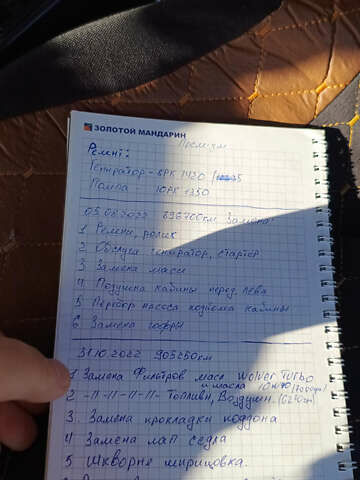 ЗОЛОТОЙ МАНДАРИН
Премиум
Ремні:
Генератор - 8PK 1420
Помпа 10PK 1350
05.08.2022 896700км Замена:
1 Ремени, ролик
2 Обслуга генератор, стартор
3 Замена масси
4 Подушка кабины перед лева
5 Перебор насоса подъема кабины
6 Замена гофры
31.10.2022 905250км
1 Замена Фильтров масл Wolver Turbo
и масла 10W40
2 -//-//-//-//- Топливн, Воздушн.
3. Замена прокладки поддона
4 Замена лап седла
5 Шкворня ширицовка.